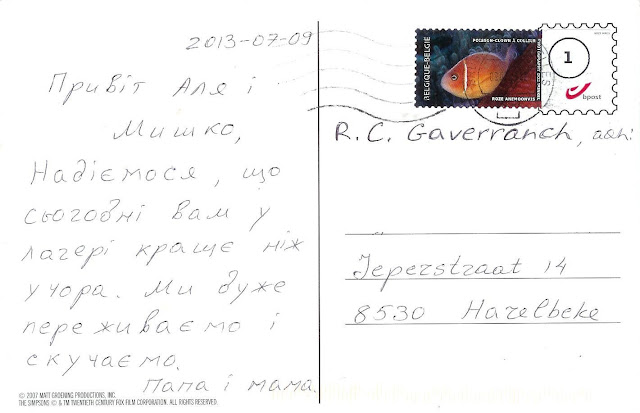 2013-07-09
Привіт Аля і
Мишко,
Надіємося, що
сьогодні вам у
лагері краще ніж
учора. Ми дуже
переживаємо і
скучаємо.
Папа і мама.
© 2007 MATT GROENING PRODUCTIONS, INC.
THE SIMPSONS © & TM TWENTIETH CENTURY FOX FILM CORPORATION. ALL RIGHTS RESERVED.
BELGIQUE-BELGIË
POISSON-CLOWN À COLLIER
ROZE ANEMOONVIS
1
bpost
R. C. Gaverranch,
Ieperstraat 14
8530 Harelbeke